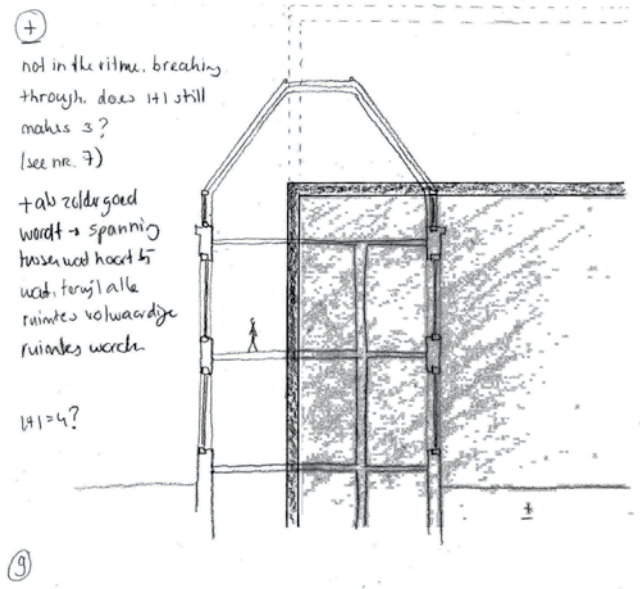 +
not in the ritme. breaking
through. does 1+1 still
makes 3?
(see nr. 7)
+ als zolder goed
wordt → spanning
tussen wat hoort bij
wat, terwijl alle
ruimtes volwaardige
ruimtes worden
1+1=4?
+
9